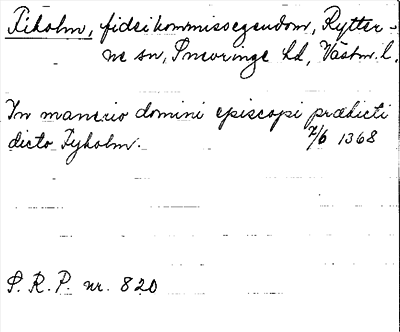 Fiholm, fideikommissegendom, Rytter-
ne sn, Snevringe hd, Västm. l.
In manerio domini episcopi prædicti
dicto Fyholm. 7/6 1368
S. R. P. nr. 820